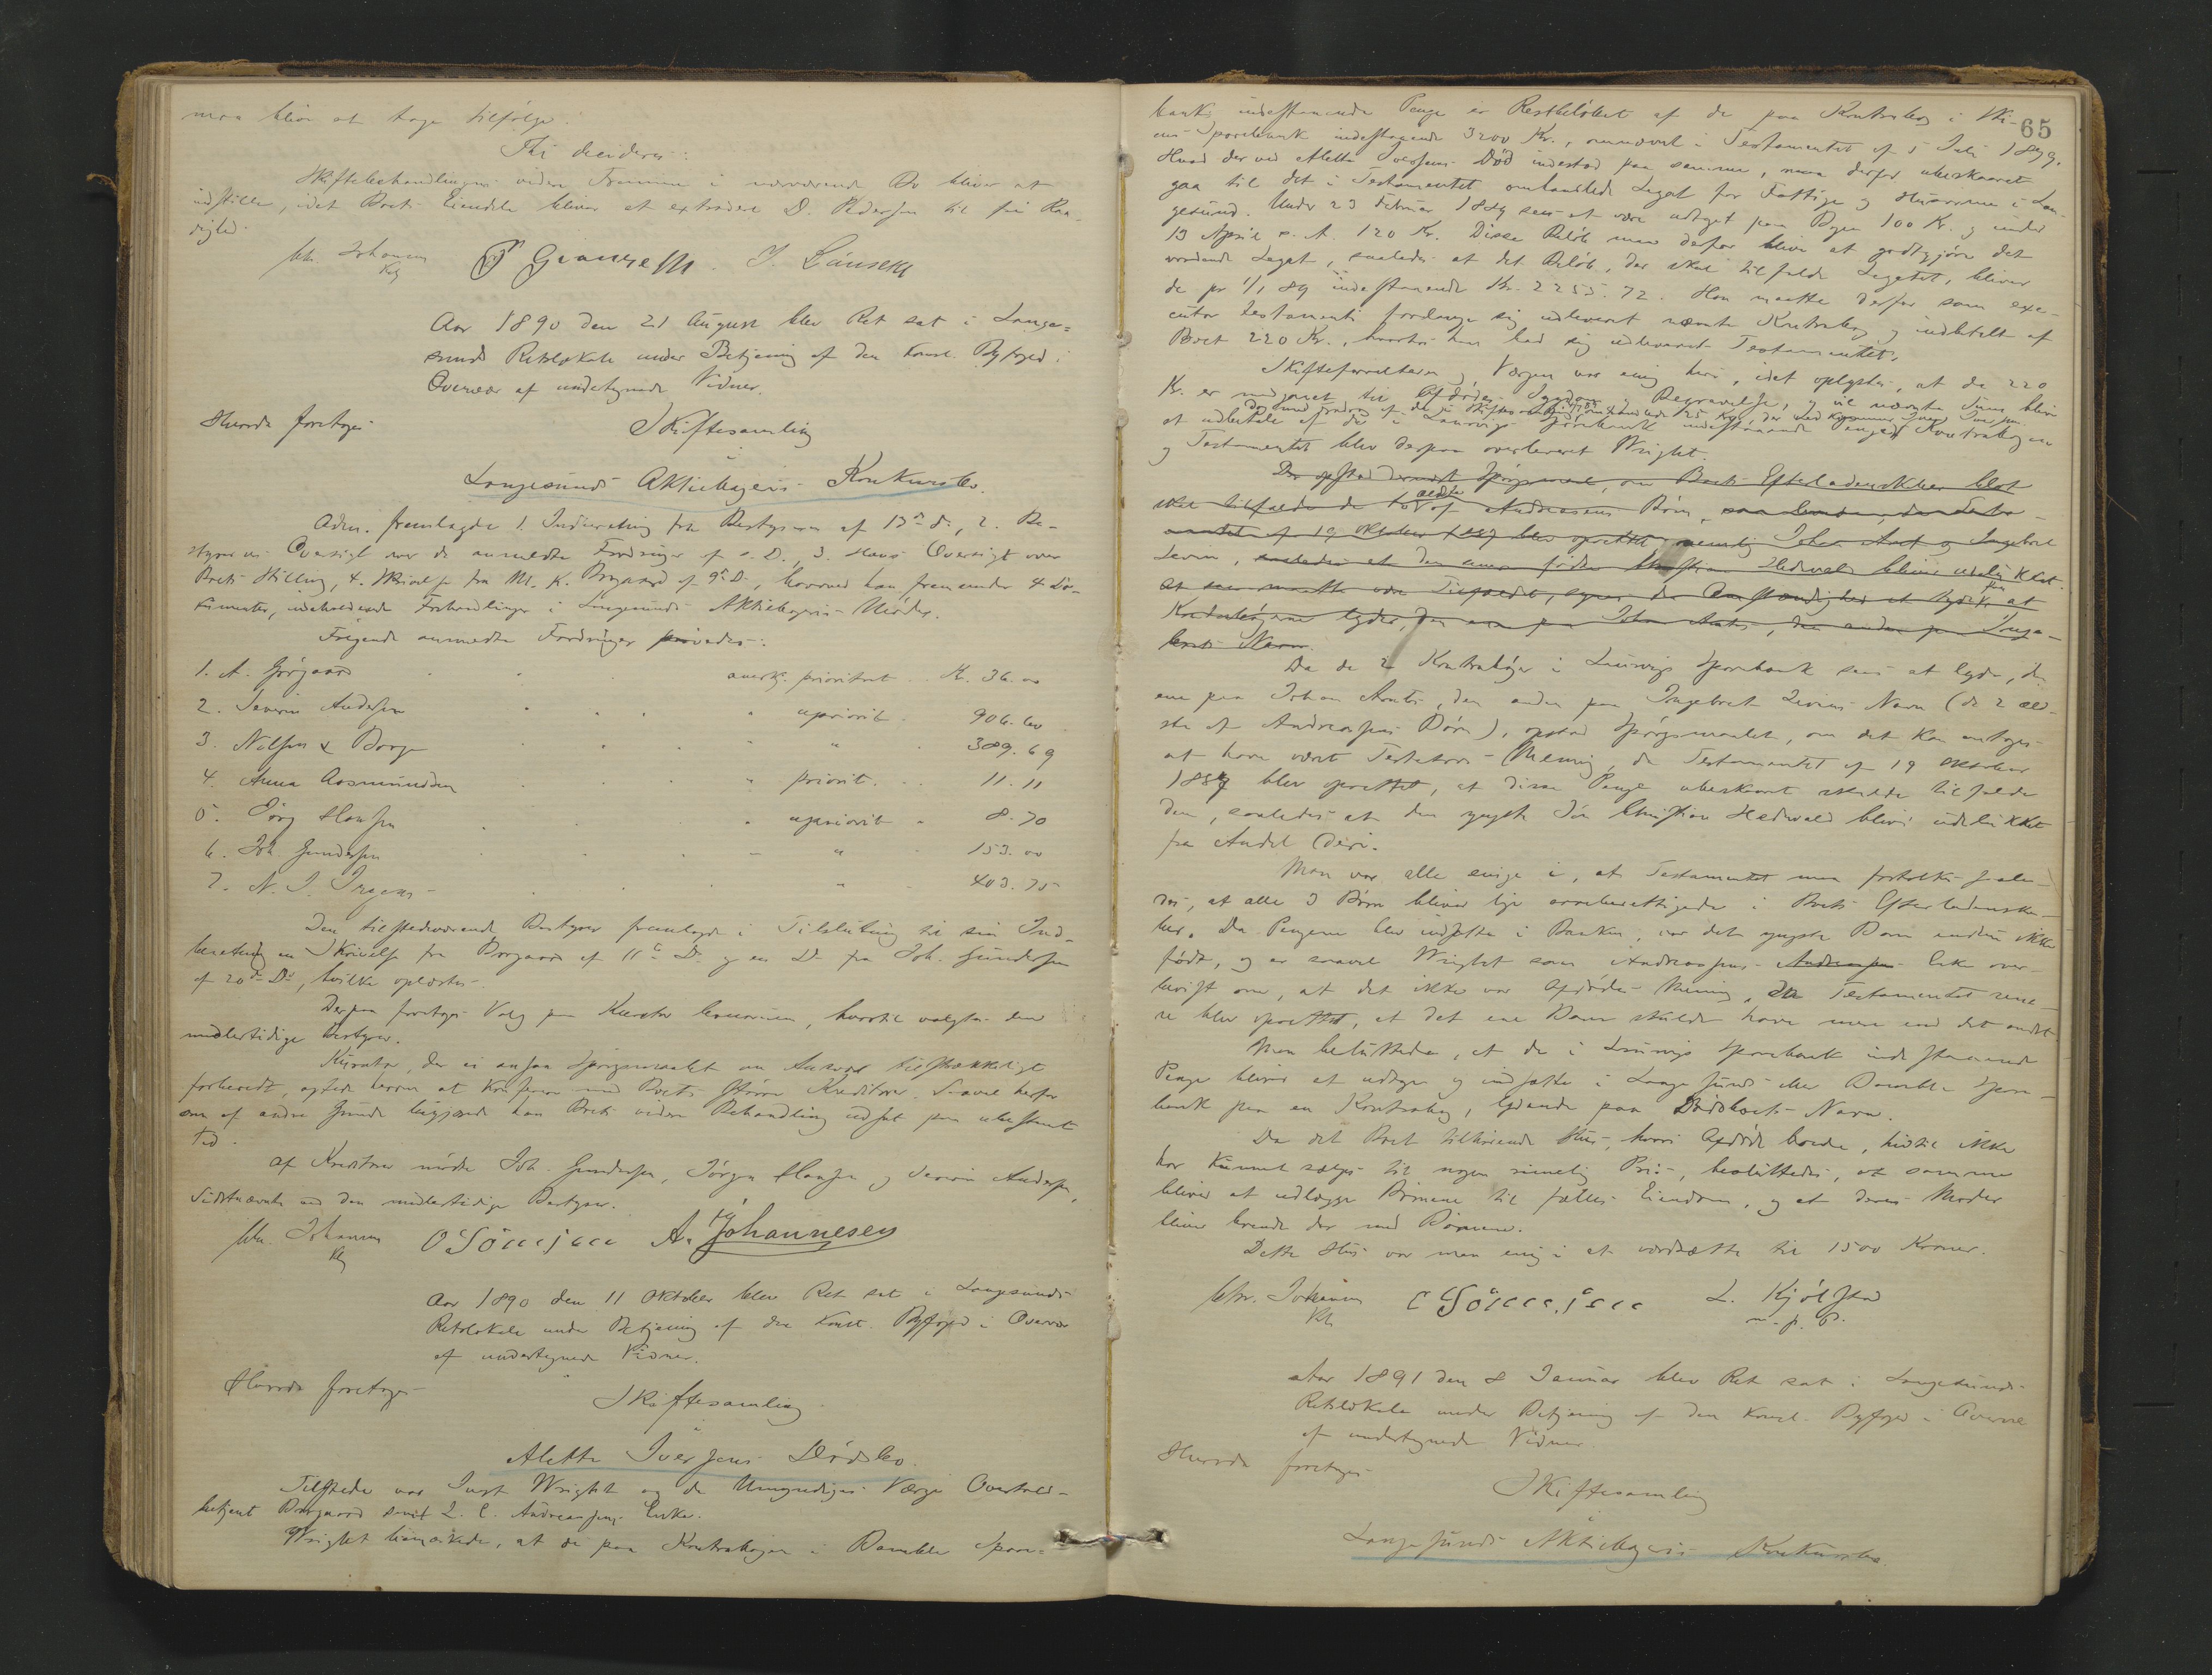 maa bliver at tage tilfølge.
Thi decideres:
Skiftebehandlingens videre Fremme i nærværende Bo bliver at
indstille, idet Boets Eiendele bliver at extradere D. Pedersen til fri Raa-
dighed.
Chr. Johansen
Kst
Aar 1890 den 21 August blev Ret sat i Lange-
sunds Retslokale under Betjening af den konst. Byfoged i
Overvær af undertegnede Vidner.
Hvorda foretoges
Skiftesamling
i
Langesunds Aktiebageris Konkursbo.
Adm. fremlagde 1. Indberetning fra Bestyreren af 13de ds., 2. Be-
styrerens Oversigt over de anmeldte Fordringer af s. D., 3. Hans Oversigt over
Boets Stilling, 4. Skrivelse fra M. K. Borgaard af 9de D., hvorved han fremsender 4 Do-
kumenter, indeholdende Forhandlinger i Langesunds Aktiebageris Møder.
Følgende anmeldte Fordringer prøvedes:
1. A. Gørgaard . . . anerkj. prioritet . . Kr. 36.00
2. Severin Andersen . . . . upriorit. . 906.60
3. Nilsen & Borge . . . . " . 389.69
4. Anna Aasmundsen . . . . priorit. . . 11.11
5. Jörg Hansen . . . upriorit . 8.70
6. Joh Gundersen . . . . " . 153.00
7. N. J. Irgens . . . . " . 403.75
Den tilstedeværende Bestyrer fremlagde i Tilslutning til sin Ind-
beretning en Skrivelse fra Borgaard af 11te D. og en Do fra Joh. Gundersen
af 20de Ds, hvilke oplæstes.
Derpaa foretoges Valg paa Kurator bonorum, hvortil valgtes den
midlertidige Bestyrer.
Kurator, der ei ansaa Spørgsmaalet om Ansvar tilstrækkeligt
forberedt, agtede herom at konferere med Boets større Kreditorer. Saavel herfor
som af andre Grunde begjærede han Boets videre Behandling udsat paa ubestemt
Tid.
Af Kreditorer mødte Joh. Gundersen, Jörgen Hansen og Severin Andersen,
Sidstnævnte ved den midlertidige Bestyrer.
Chr. Johansen
Kst
A. Johannesen
Aar 1890 den 11 Oktober blev Ret sat i Langesunds
Retslokale under Betjening af den konst. Byfoged i Overvær
af undertegnede Vidner.
Hvorda foretoges
Skiftesamling
i
Alette Iversens Dødsbo.
Tilstede var Just Wright og de Umyndiges Værge Overtold-
betjent Borgaard samt L. C. Andreassens Enke.
Wright bemærkede, at de paa Kontrabogen i Bamble Spare-
65
bank indestaaende Penge er Restbeløbet af de paa Kontrabog i Ski-
ens Sparebank indestaaende 3200 Kr., omnævnt i Testamentet af 5 Juli 1879.
Hvad der ved Alette Iversens Død indestod paa samme, maa derfor ubeskaaret
gaa til det i Testamentet omhandlede Legat for Fattige og Husarme i Lan-
gesund. Under 23 Februar 1889 sees at være udtaget paa Bogen 100 Kr. og under
13 April s. A. 120 Kr. Disse Beløb maa derfor blive at godtgjøre det
vordende Legat, saaledes at det Beløb, der skal tilfalde Legatet, bliver
de pr 1/1 89 indestaaende Kr. 2255.72. Han maatte derfor som exe-
cutor testamenti forlange sig udleveret nævnte Kontrabog og indbetalt af
Boet 220 Kr., hvorhos han bad sig udleveret Testamentet.
Skifteforvalteren og Værgen var enig heri, idet oplystes, at de 220
Kr. er medgaaet til Afdødes Sygdom og Begravelse, og vil nævnte Sum blive
at udbetale af de i Laurvigs Sparebank indestaaende Penge. Kontrabogen
og Testamentet blev derpaa overleveret Wright.
Der opstod dernæst Spørgsmaal, om Boets Efterladenskaber blot
skal tilfalde de to ældste af Andreasens Børn,
af 19 Oktober 1887 blev oprettet, nemlig Johan Arnt og Ingebret
Severin, saaledes at den senere fødte Christian Hedevald bliver udelukket.
At saa maatte være Tilfældet, synes den Omstændighed at tyde paa, at
Kontrabøgerne lyder, den ene paa Johan Arnts, den anden paa Inge-
brets Navn.
Da de 2 Kontrabøger i Laurvigs Sparebank sees at lyde, den
ene paa Johan Arnts, den anden paa Ingebret Severins Navn (de 2 æld-
ste af Andreassens Børn), opstod Spørgsmaalet, om det kan antages
at have været Testators Mening, da Testamentet af 19 Oktober
1887 blev oprettet, at disse Penge ubeskaaret skulde tilfalde
dem, saaledes at den yngste Søn Christian Hedevald blev udelukket
fra Andel deri.
Man var alle enige i, at Testamentet maa fortolkes saale-
des, at alle 3 Børn bliver lige arveberettigede i Boets Efterladenska-
ber. Da Pengene blev indsatte i Banken, var det yngste Barn endnu ikke
født, og er saavel Wright som Andreassens Andreassens Enke over-
bevist om, at det ikke var Afdødes Mening, da Testamentet sene-
re blev oprettet, at det ene Barn skulde have mere end det andet.
Man besluttede, at de i Laurvigs Sparebank indestaaende
Penge bliver at udtage og indsætte i Langesunds eller Bamble Spare-
bank paa en Kontrabog, lydende paa Dødsboets Navn.
Da det Boet tilhørende Hus, hvori Afdøde boede, hidtil ikke
har kunnet sælges til nogen rimelig Pris, besluttedes, at samme
bliver at udlægge Børnene til fælles Eiendom, og at deres Moder
bliver boende der med Børnene.
Dette Hus var man enig i at værdsætte til 1500 Kroner.
Chr. Johansen
Kst
L. Kjølstad
m. p. P.
Aar 1891 den 8 Januar blev Ret sat i Langesunds
Retslokale under Betjening af den konst. Byfoged i Overvær
af undertegnede Vidner
Hvorda foretoges
Skiftesamling
i
Langesunds Aktiebageris Konkursbo.